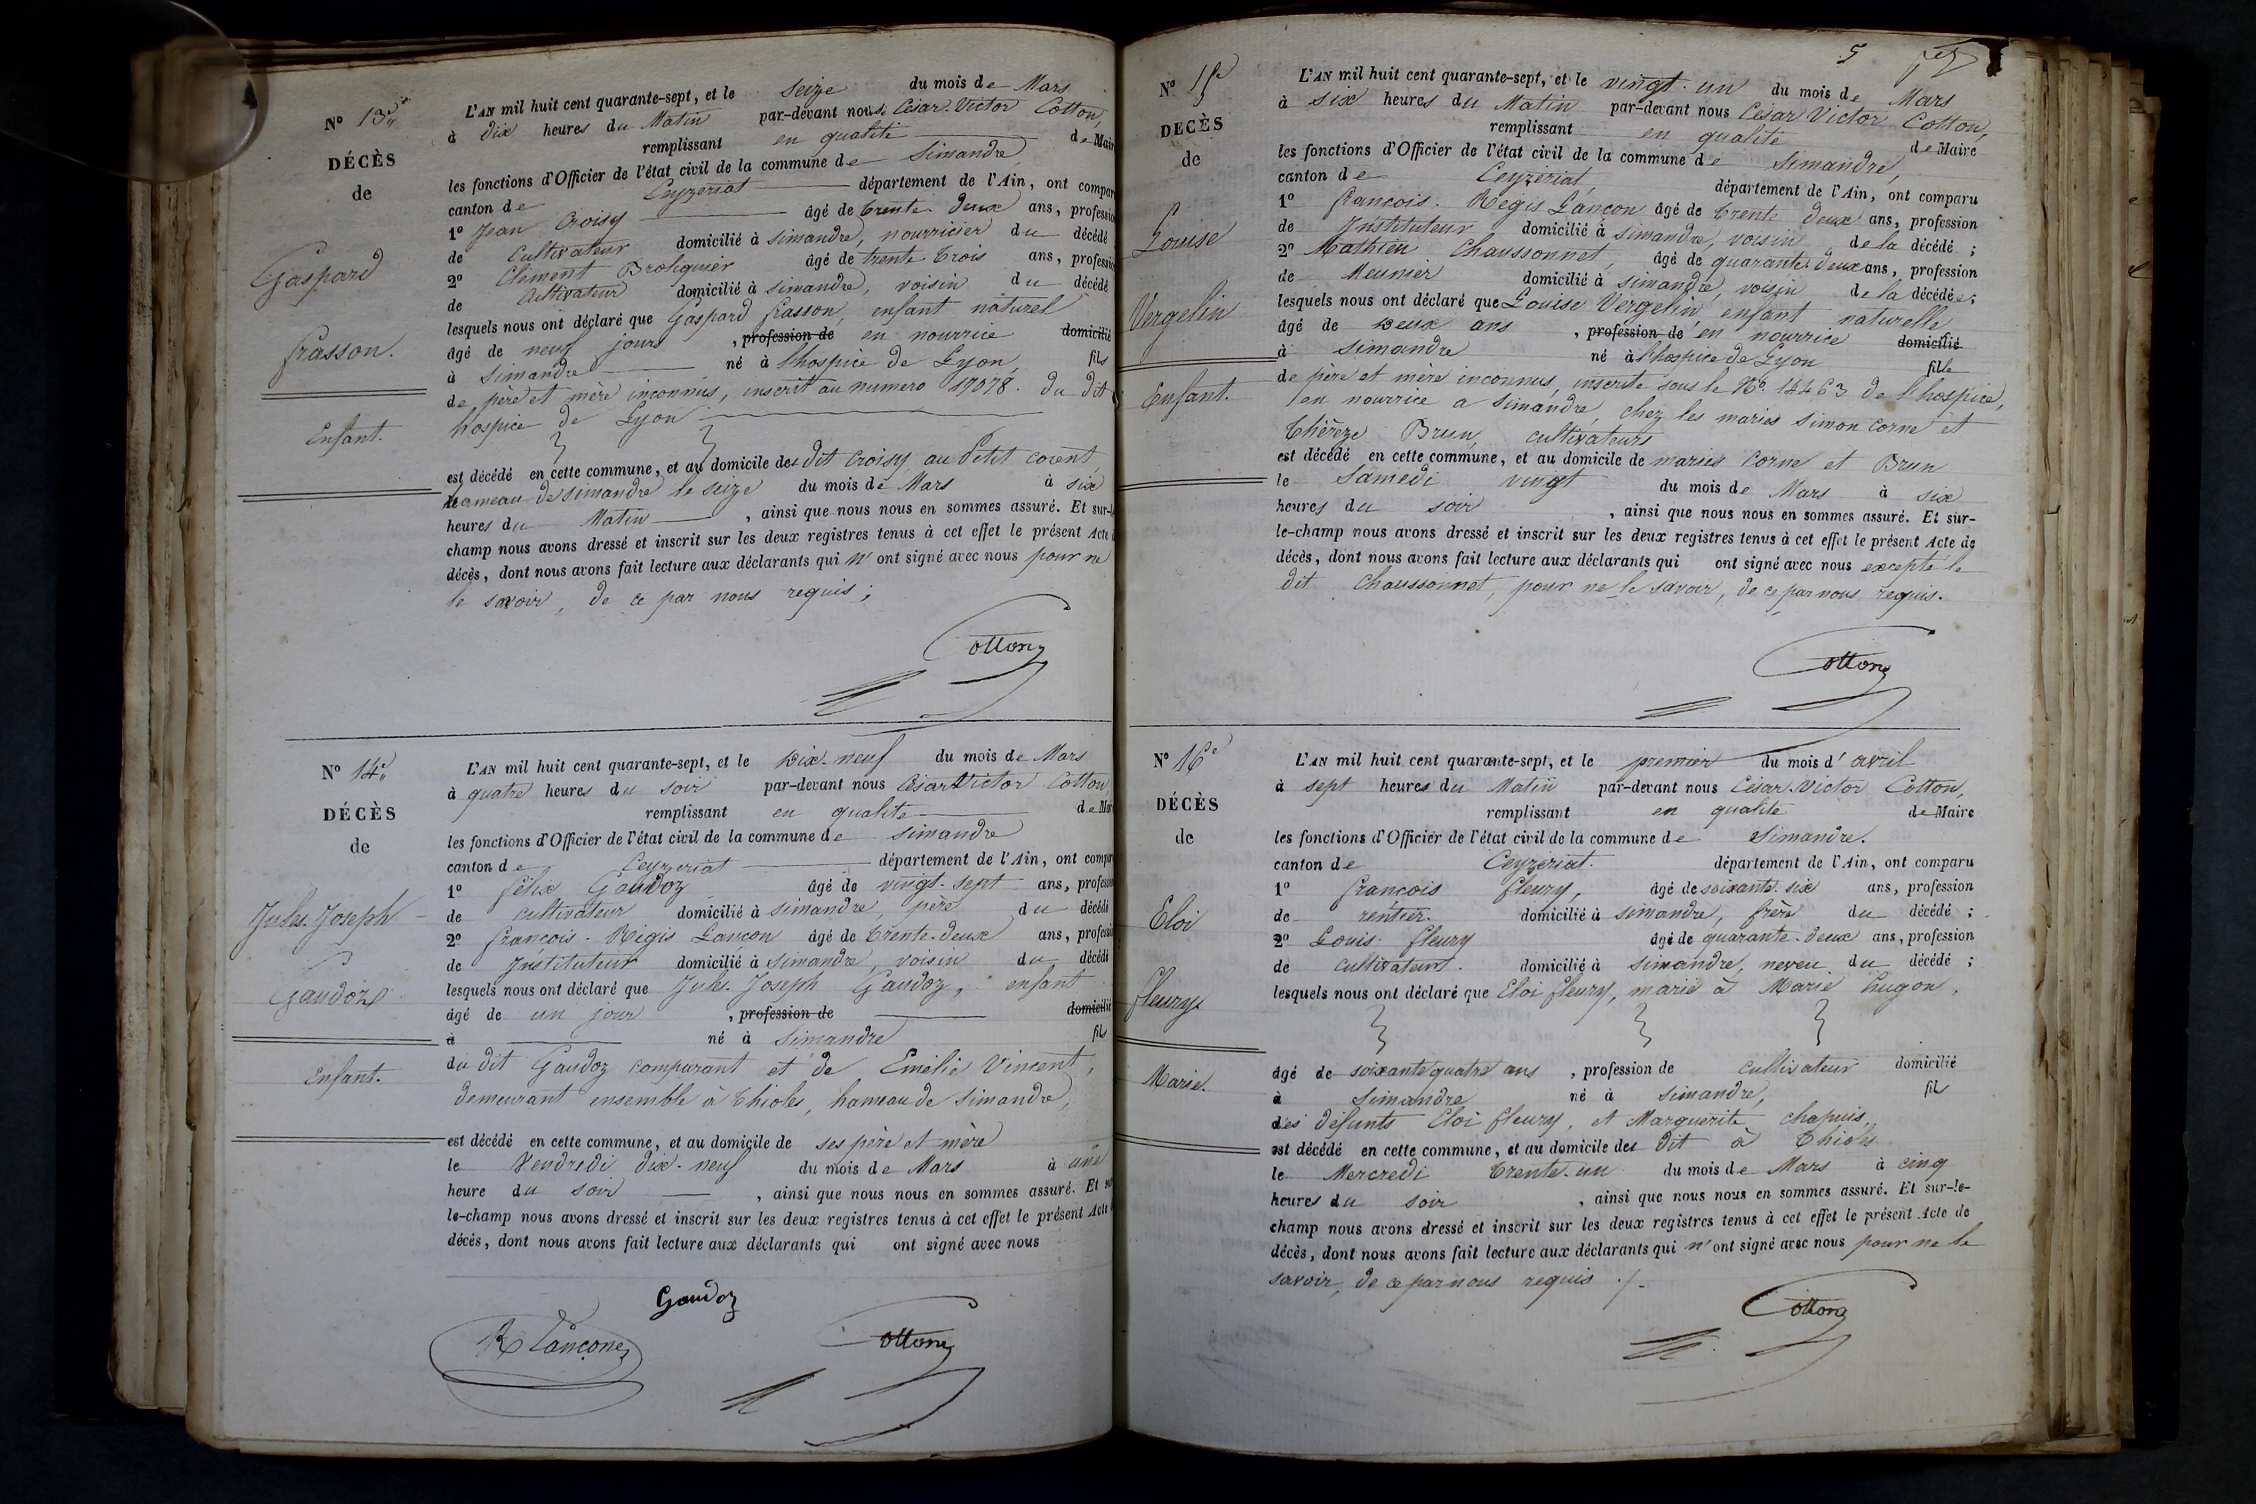 Nº 13e
DÉCÈS
de
Gaspard
frasson.
Enfant.
L'AN mil huit cent quarante-sept, et le seize du mois de Mars
à dix heures du Matin par-devant nous César-Victor Cotton,
remplissant en qualité de Maire
les fonctions d'Officier de l'état civil de la commune de Simandre,
canton de Ceyzeriat département de l'Ain, ont comparu
1º Jean Croisy âgé de trente-deux ans, profession
de Cultivateur domicilié à simandre, nourricier du décédé
2º Clément Broliquier âgé de trente trois ans, profession
de Cultivateur domicilié à simandre, voisin du décédé
lesquels nous ont déclaré que Gaspard frasson, enfant naturel
âgé de neuf jours , profession de en nourrice domicilié
à Simandre né à l'hospice de Lyon, fils
de père et mère inconnus, inscrit au numero 17078. du dit
hospice de Lyon
est décédé en cette commune, et au domicile des dit Croisy au Petit Corent
hameau de simandre le seize du mois de Mars à six
heures du Matin , ainsi que nous nous en sommes assuré. Et sur-le-
champ nous avons dressé et inscrit sur les deux registres tenus à cet effet le présent Acte de
décès, dont nous avons fait lecture aux déclarants qui n'ont signé avec nous pour ne
le savoir, de ce par nous requis;
Cotton
Nº 14e
DÉCÈS
de
Jules-Joseph
Gaudoz
Enfant.
L'AN mil huit cent quarante-sept, et le dix-neuf du mois de Mars
à quatre heures du soir par-devant nous César Victor Cotton
remplissant en qualité de Maire
les fonctions d'Officier de l'état civil de la commune de simandre
canton de Ceyzeriat département de l'Ain, ont comparu
1º félix Gaudoz âgé de vingt-sept ans, profession
de cultivateur domicilié à simandre, père du décédé
2º francois-Régis Lançon âgé de trente-deux ans, profession
de Instituteur domicilié à simandre, voisin du décédé
lesquels nous ont déclaré que Jules-Joseph Gaudoz, enfant
âgé de un jour , profession de domicilié
à né à Simandre fils
du dit Gaudoz comparant et de Emélie Vincent,
demeurant ensemble à thioles, hameau de Simandre,
est décédé en cette commune, et au domicile de ses père et mère
le Vendredi dix-neuf du mois de Mars à une
heure du soir , ainsi que nous nous en sommes assuré. Et sur-
le-champ nous avons dressé et inscrit sur les deux registres tenus à cet effet le présent Acte de
décès, dont nous avons fait lecture aux déclarants qui ont signé avec nous
Gaudoz
R Lançon
Cotton
5
Nº 15e
DECÈS
de
Louise
Vergelin
Enfant.
L'AN mil huit cent quarante-sept, et le vingt-un du mois de Mars
à six heures du Matin par-devant nous César Victor Cotton,
remplissant en qualité de Maire
les fonctions d'Officier de l'état civil de la commune de simandre,
canton de Ceyzériat, département de l'Ain, ont comparu
1º francois-Régis Lançon âgé de trente deux ans, profession
de Instituteur domicilié à simandre, voisin de la décédé ;
2º Mathieu Chaussonnet, âgé de quarante deux ans, profession
de Meunier domicilié à simandre, voisin de la décédée ;
lesquels nous ont déclaré que Louise Vergelin enfant naturelle
âgé de deux ans , profession de en nourrice domicilié
à simandre né à l'hospice de Lyon fille
de père et mère inconnus, inscrite sous le Nº 14463 de l'hospice,
en nourrice a simandre, chez les mariés Simon Corne et
thérèze Brun, cultivateurs
est décédé en cette commune, et au domicile de mariés Corne et Brun
le Samedi vingt du mois de Mars à six
heures du soir , ainsi que nous nous en sommes assuré. Et sur-
le-champ nous avons dressé et inscrit sur les deux registres tenus à cet effet le présent Acte de
décès, dont nous avons fait lecture aux déclarants qui ont signé avec nous excepté le
dit Chaussonnet, pour ne le savoir, de ce par nous requis.
Cotton
Nº 16e
DÉCÈS
de
Eloi
fleury
Marié.
L'AN mil huit cent quarante-sept, et le premier du mois d'avril
à sept heures du Matin par-devant nous César-Victor Cotton,
remplissant en qualité de Maire
les fonctions d'Officier de l'état civil de la commune de Simandre.
canton de Ceyzériat. département de l'Ain, ont comparu
1º françois fleury, âgé de soixante-six ans, profession
de rentier. domicilié à simandre, frère du décédé ;
2º Louis fleury âgé de quarante-deux ans, profession
de cultivateur. domicilié à simandre, neveu du décédé ;
lesquels nous ont déclaré que Eloi fleury, marié à Marie hugon,
âgé de soixante quatre ans , profession de cultivateur domicilié
à Simandre né à simandre, fils
des défunts Eloi fleury, et Marguerite Chapuis,
est décédé en cette commune, et au domicile des dit à thioles
le Mercredi trente-un du mois de Mars à cinq
heures du soir , ainsi que nous nous en sommes assuré. Et sur-le-
champ nous avons dressé et inscrit sur les deux registres tenus à cet effet le présent Acte de
décès, dont nous avons fait lecture aux déclarants qui n'ont signé avec nous pour ne le
savoir, de ce par nous requis ./.
Cotton